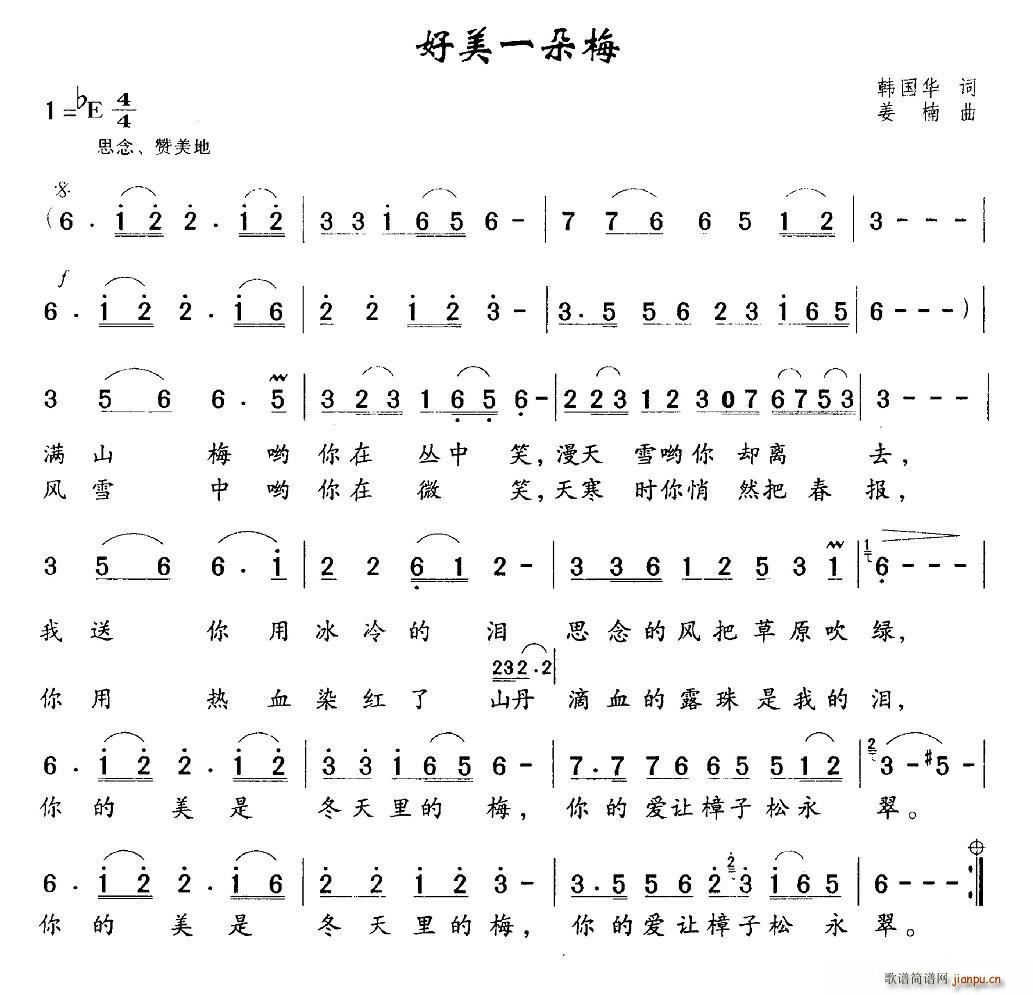 好美一朵梅
韩国华 词
1=♭E 4/4
姜 楠 曲
思念、赞美地
(6 . i 2 2 . i 2 | 3 3 i 6 5 6 - | 7 7 6 6 5 1 2 | 3 - - - |
f
6 . i 2 2 . i 6 | 2 2 i 2 3 - | 3. 5 5 6 2 3 i 6 5 | 6 - - - ) |
3 5 6 6 . 5 | 3 2 3 1 6 5 6 - | 2 2 3 1 2 3 0 7 6 7 5 3 | 3 - - - |
满 山 梅 哟 你 在 丛 中 笑, 漫天 雪哟你 却离 去,
风 雪 中 哟 你 在 微 笑, 天寒 时你悄 然把 春 报,
3 5 6 6 . i | 2 2 6 1 2 - | 3 3 6 1 2 5 3 1 | 1 6 - - - |
我 送 你 用 冰 冷 的 泪 思 念 的 风 把 草 原 吹 绿,
2 3 2 . 2
你 用 热 血 染 红 了 山丹 滴 血 的 露 珠 是 我 的 泪,
6 . i 2 2 . i 2 | 3 3 i 6 5 6 - | 7 . 7 7 6 6 5 5 1 2 | 2 3 - #5 - |
你 的 美 是 冬 天 里 的 梅, 你 的 爱 让 樟 子 松 永 翠。
6 . i 2 2 . i 6 | 2 2 i 2 3 - | 3 . 5 5 6 2 2 3 i 6 5 | 6 - - - :|
你 的 美 是 冬 天 里 的 梅, 你 的 爱 让 樟 子 松 永 翠。
歌谱简谱网 jianpu.cn